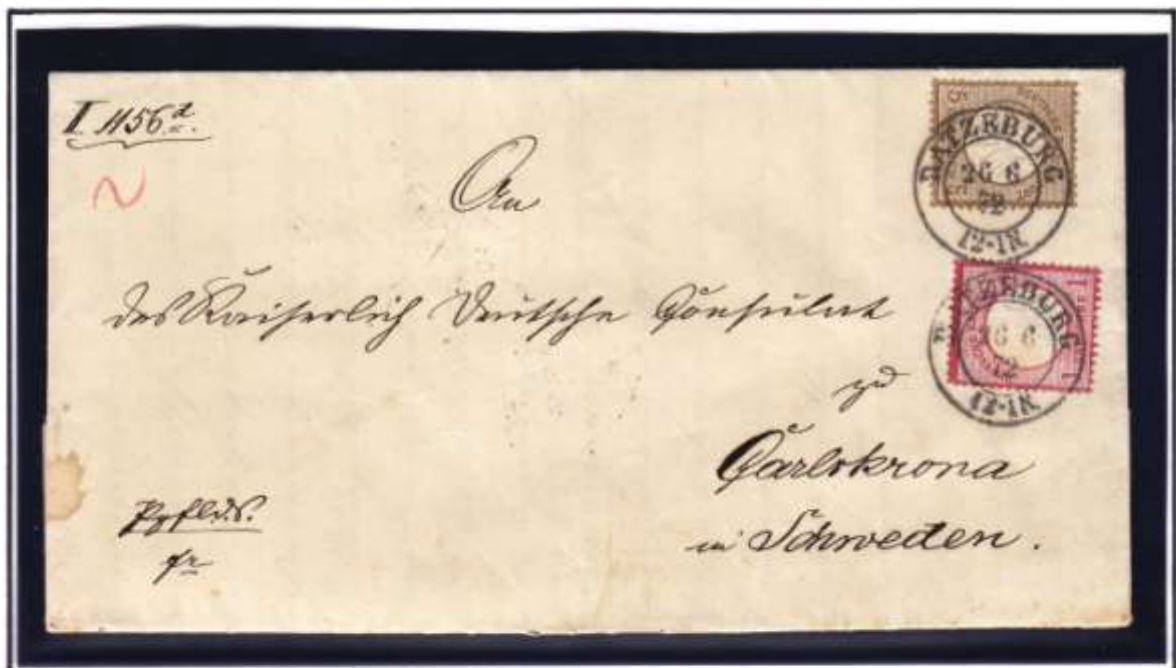 I 1156 d.
An
das Kaiserlich Deutsche Consulat
zu
Carlskrona
in Schweden.
fr
RATZEBURG
26 6
72
12-1N.
RATZEBURG
26 6
72
12-1N.
5
1
1